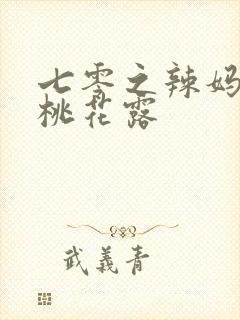 七零之辣妈
桃花露
武義青